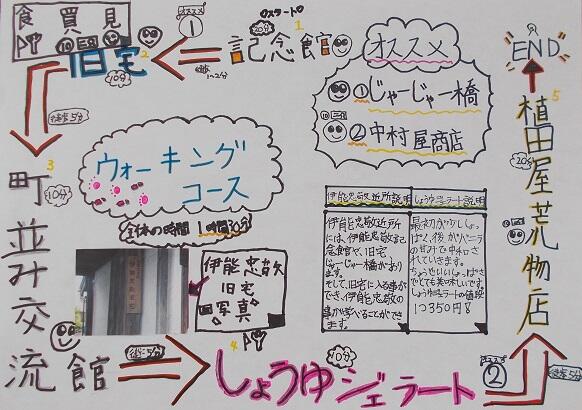 食 買 見
スタート
1
20分
記念館
オススメ
①
徒歩1~2分
2
旧宅
10分
徒歩5分
3
町並み交流館
10分
徒歩5分
4
しょうゆジェラート
10分
オススメ
②
徒歩5分
5
植田屋荒物店
20分
END
オススメ
①じゃーじゃー橋
②中村屋商店
ウォーキング
コース
全体の時間 1時間30分
伊能忠敬
旧宅
写真
伊能忠敬近所説明
伊能忠敬近所
には、伊能忠敬記
念館や、旧宅、
じゃーじゃー橋があり
ます。
そして、旧宅に入る事が
でき、伊能忠敬の
事が学べることができ
ます。
しょうゆジェラート説明
最初が少ししょっ
ぱく、後がバニラ
の甘みで中和
されていきます。
ちょうどいいしょっぱさ
でとても美味しいです。
しょうゆジェラートの値段
1つ350円